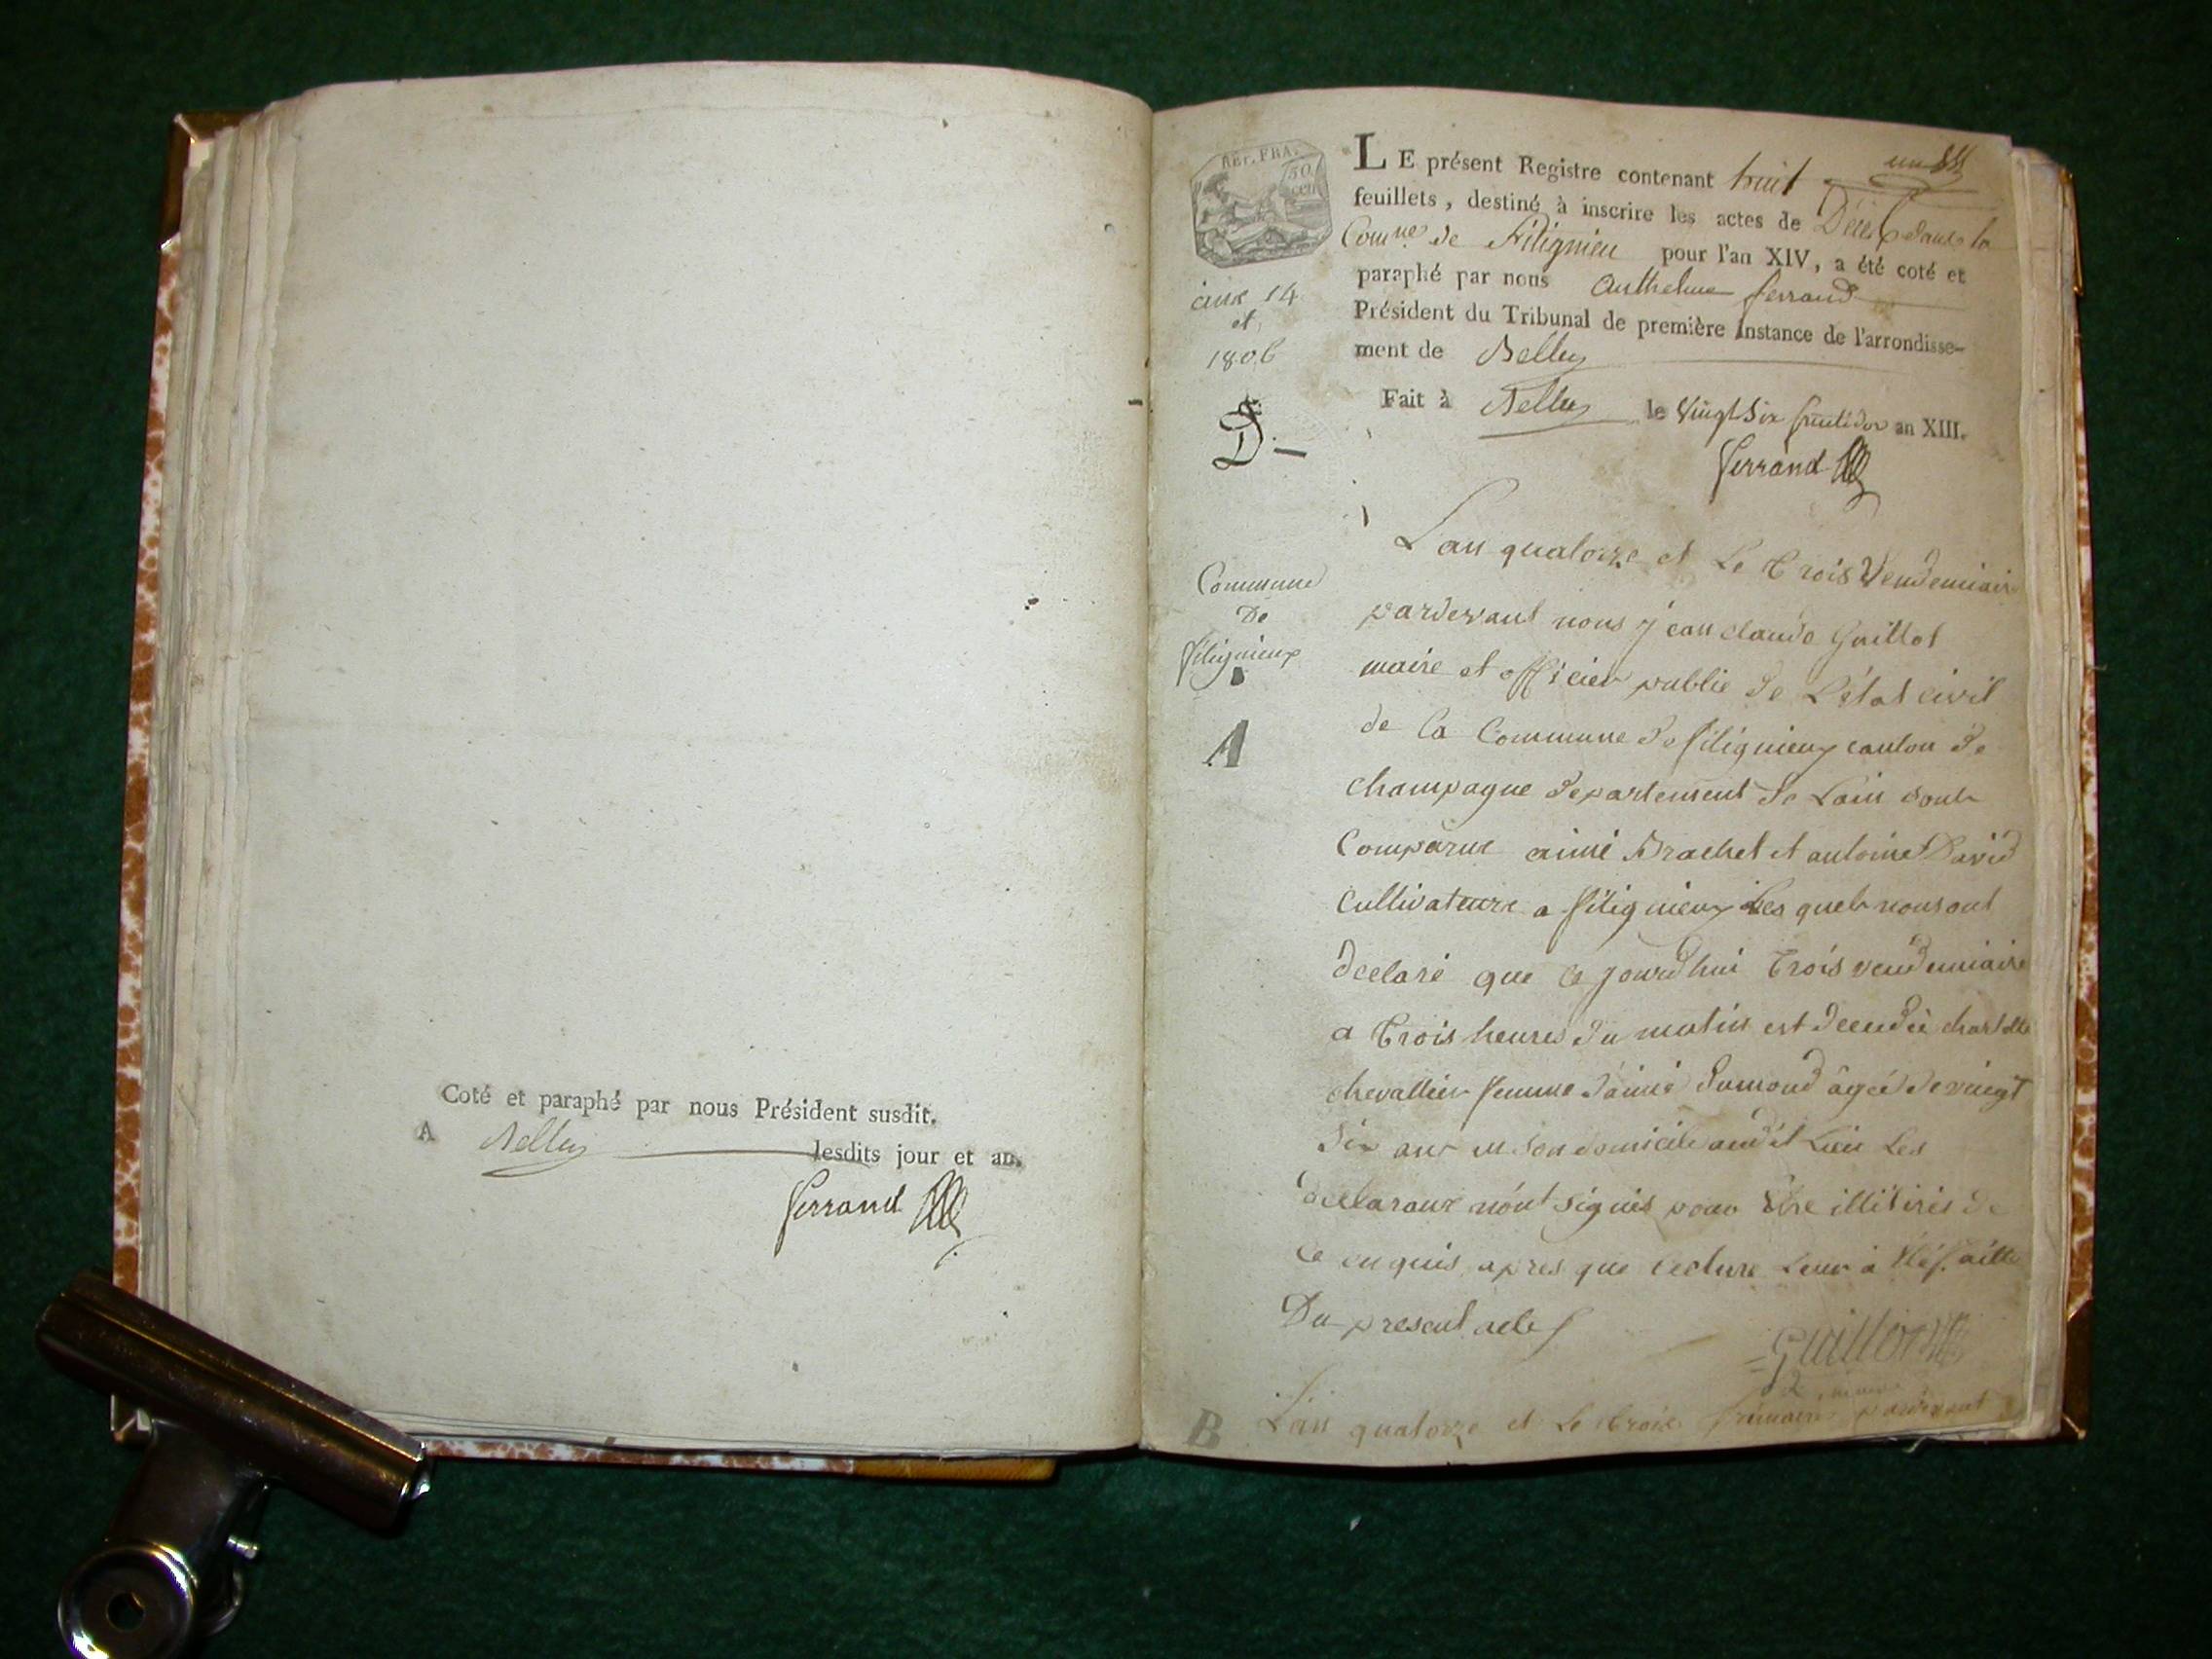 Coté et paraphé par nous Président susdit.
A Belley lesdits jour et an.
Ferrand
REP. FRA.
50
cen
un
LE présent Registre contenant huit
feuillets, destiné à inscrire les actes de Décès dans la
Comne de Filignieu pour l'an XIV, a été coté et
paraphé par nous Anthelme ferrand
Président du Tribunal de première Instance de l'arrondisse-
ment de Belley
Fait à Belley le Vingt Six fructidor an XIII.
Ferrand
aux 14
et
1806
D.
Commune
De
filignieux
A
L'an quatorze et Le Trois Vendemiaire
pardevant nous jean claude Guillot
maire et officier public de L'état civil
de la Commune de filignieux canton de
champagne departement de Lain sont
Comparue aimé Brachet et antoine David
Cultivateure a filignieux Les quels nous ont
declaré que Ce jourd'hui Trois vendemiaire
a Trois heures du matin est decedée charlotte
chevallier femme d'aimé Dumond âgée de vingt
Six ans en son domicile audit Lieu Les
declarant n'ont signés pour Etre illitirés de
Ce enquis apres que Lecture Leur à été faitte
Du present acte
Guillot
B
L'an quatorze et Le trois frimaire pardevant